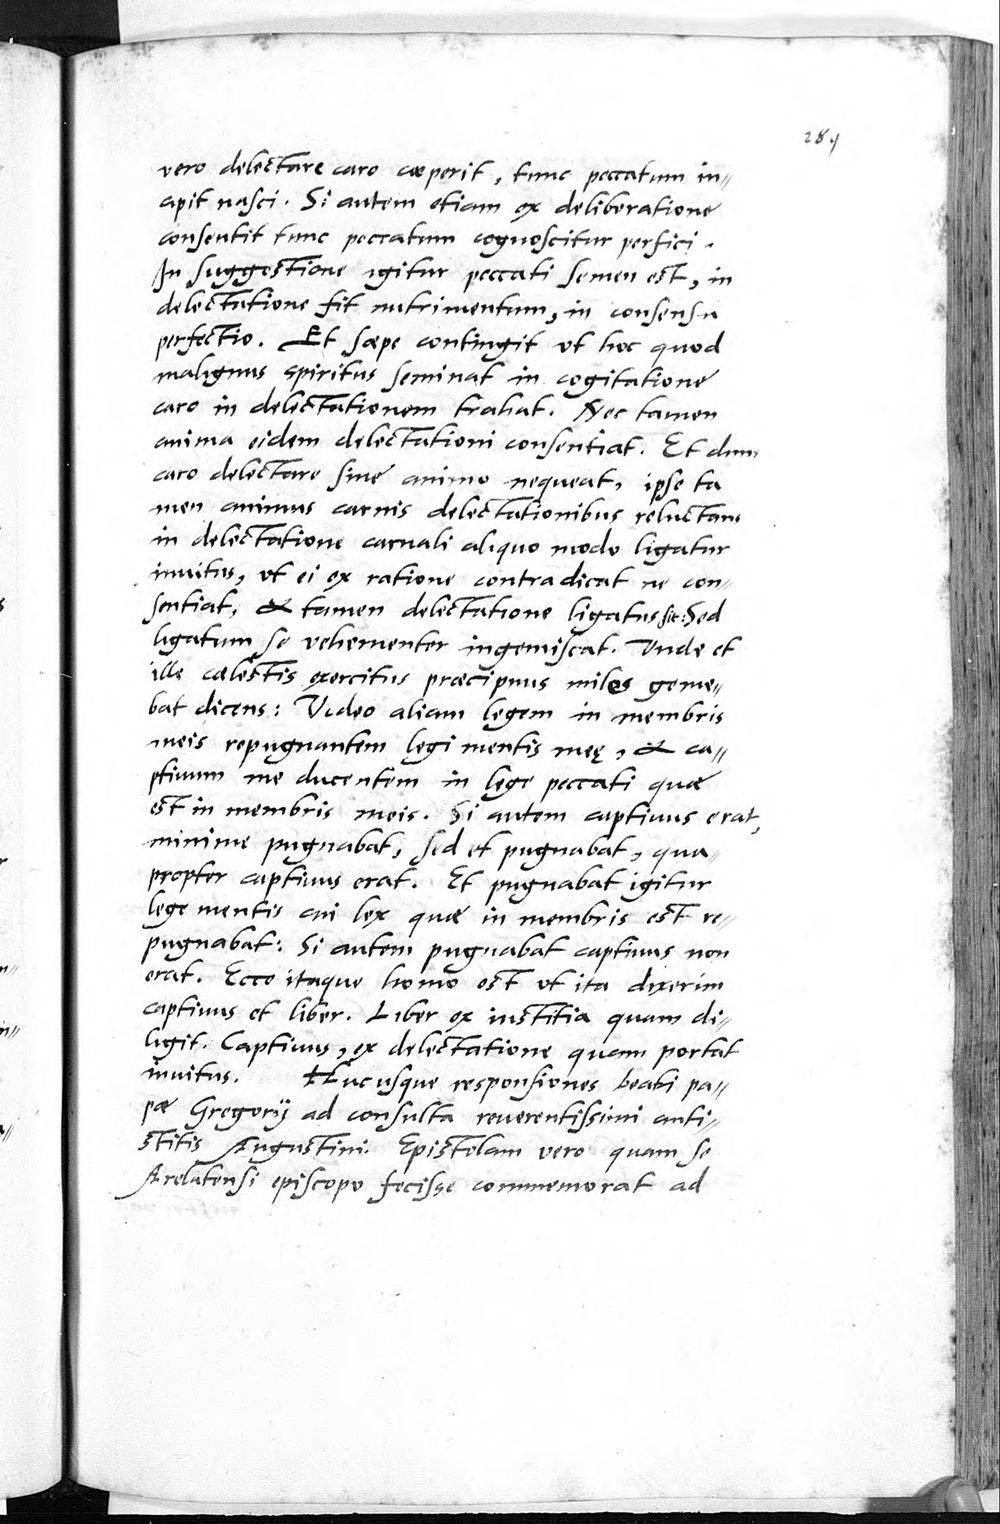 284
vero delectare caro cæperit, tunc peccatum in=
cipit nasci. Si autem etiam ex deliberatione
consentit tunc peccatum cognoscitur perfici.
In suggestione igitur peccati semen est, in
delectatione fit nutrimentum, in consensu
perfectio. Et sæpe contingit ut hoc quod
malignus spiritus seminat in cogitatione
caro in delectationem trahat. Nec tamen
anima eidem delectationi consentiat. Et dum
caro delectare sine animo nequeat, ipse ta
men animus carnis delectationibus reluctans
in delectatione carnali aliquo modo ligatur
inuitus, vt ei ex ratione contradicat ne con=
sentiat, & tamen delectatione ligatus sit: Sed
ligatum se vehementer ingemiscat. Vnde et
ille cælestis exercitus præcipuus miles geme=
bat dicens: Video aliam legem in membris
meis repugnantem legi mentis meę, & ca=
ptiuum me ducentem in lege peccati quæ
est in membris meis. Si autem captiuus erat,
minime pugnabat, sed et pugnabat, qua=
propter captiuus erat. Et pugnabat igitur
lege mentis cui lex quæ in membris est re=
pugnabat: Si autem pugnabat captiuus non
erat. Ecce itaque homo est vt ita dixerim
captiuus et liber. Liber ex iustitia quam di=
ligit. Captiuus, ex delectatione quam portat
inuitus. Hucusque responsiones beati pa=
pæ Gregorij ad consulta reuerentissimi anti=
stitis Augustini. Epistolam vero quam se
Arelatensi episcopo fecisse commemorat ad